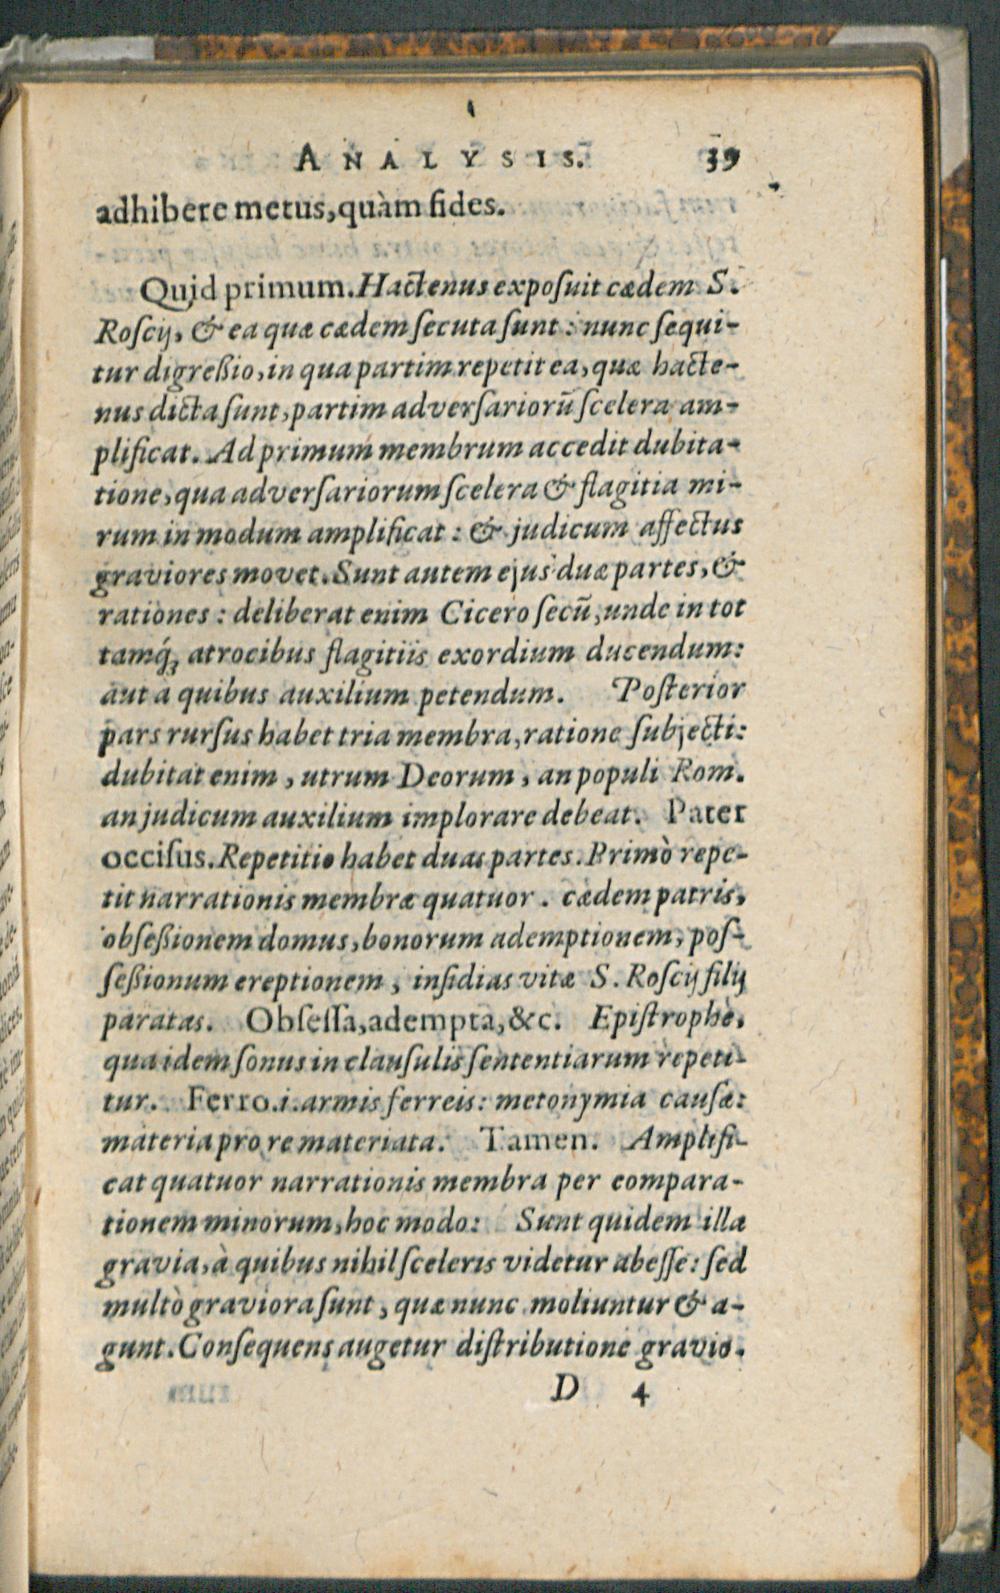 ANALYSIS. 39
adhibere metus, quàm fides.
Quid primum. Hactenus exposuit cædem S.
Roscij, & ea quæ cædem secuta sunt: nunc sequi-
tur digreßio, in qua partim repetit ea, quæ hacte-
nus dicta sunt, partim adversariorū scelera am-
plificat. Ad primum membrum accedit dubita-
tione, qua adversariorum scelera & flagitia mi-
rum in modum amplificat: & judicum affectus
graviores movet. Sunt autem ejus duæ partes, &
rationes: deliberat enim Cicero secū, unde in tot
tamq́; atrocibus flagitiis exordium ducendum:
aut à quibus auxilium petendum. Posterior
pars rursus habet tria membra, ratione subjecti:
dubitat enim, utrum Deorum, an populi Rom.
an judicum auxilium implorare debeat. Pater
occisus. Repetitio habet duas partes. Primò repe-
tit narrationis membra quatuor. cædem patris,
obseßionem domus, bonorum ademptionem, pos-
seßionum ereptionem, insidias vitæ S. Roscij filij
paratas. Obsessa, adempta, &c. Epistrophè,
qua idem sonus in clausulis sententiarum repeti-
tur. Ferro. i. armis ferreis: metonymia causæ:
materia pro re materiata. Tamen. Amplifi-
cat quatuor narrationis membra per compara-
tionem minorum, hoc modo: Sunt quidem illa
gravia, à quibus nihil sceleris videtur abesse: sed
multò graviora sunt, quæ nunc moliuntur & a-
gunt. Consequens augetur distributione gravio.
D 4